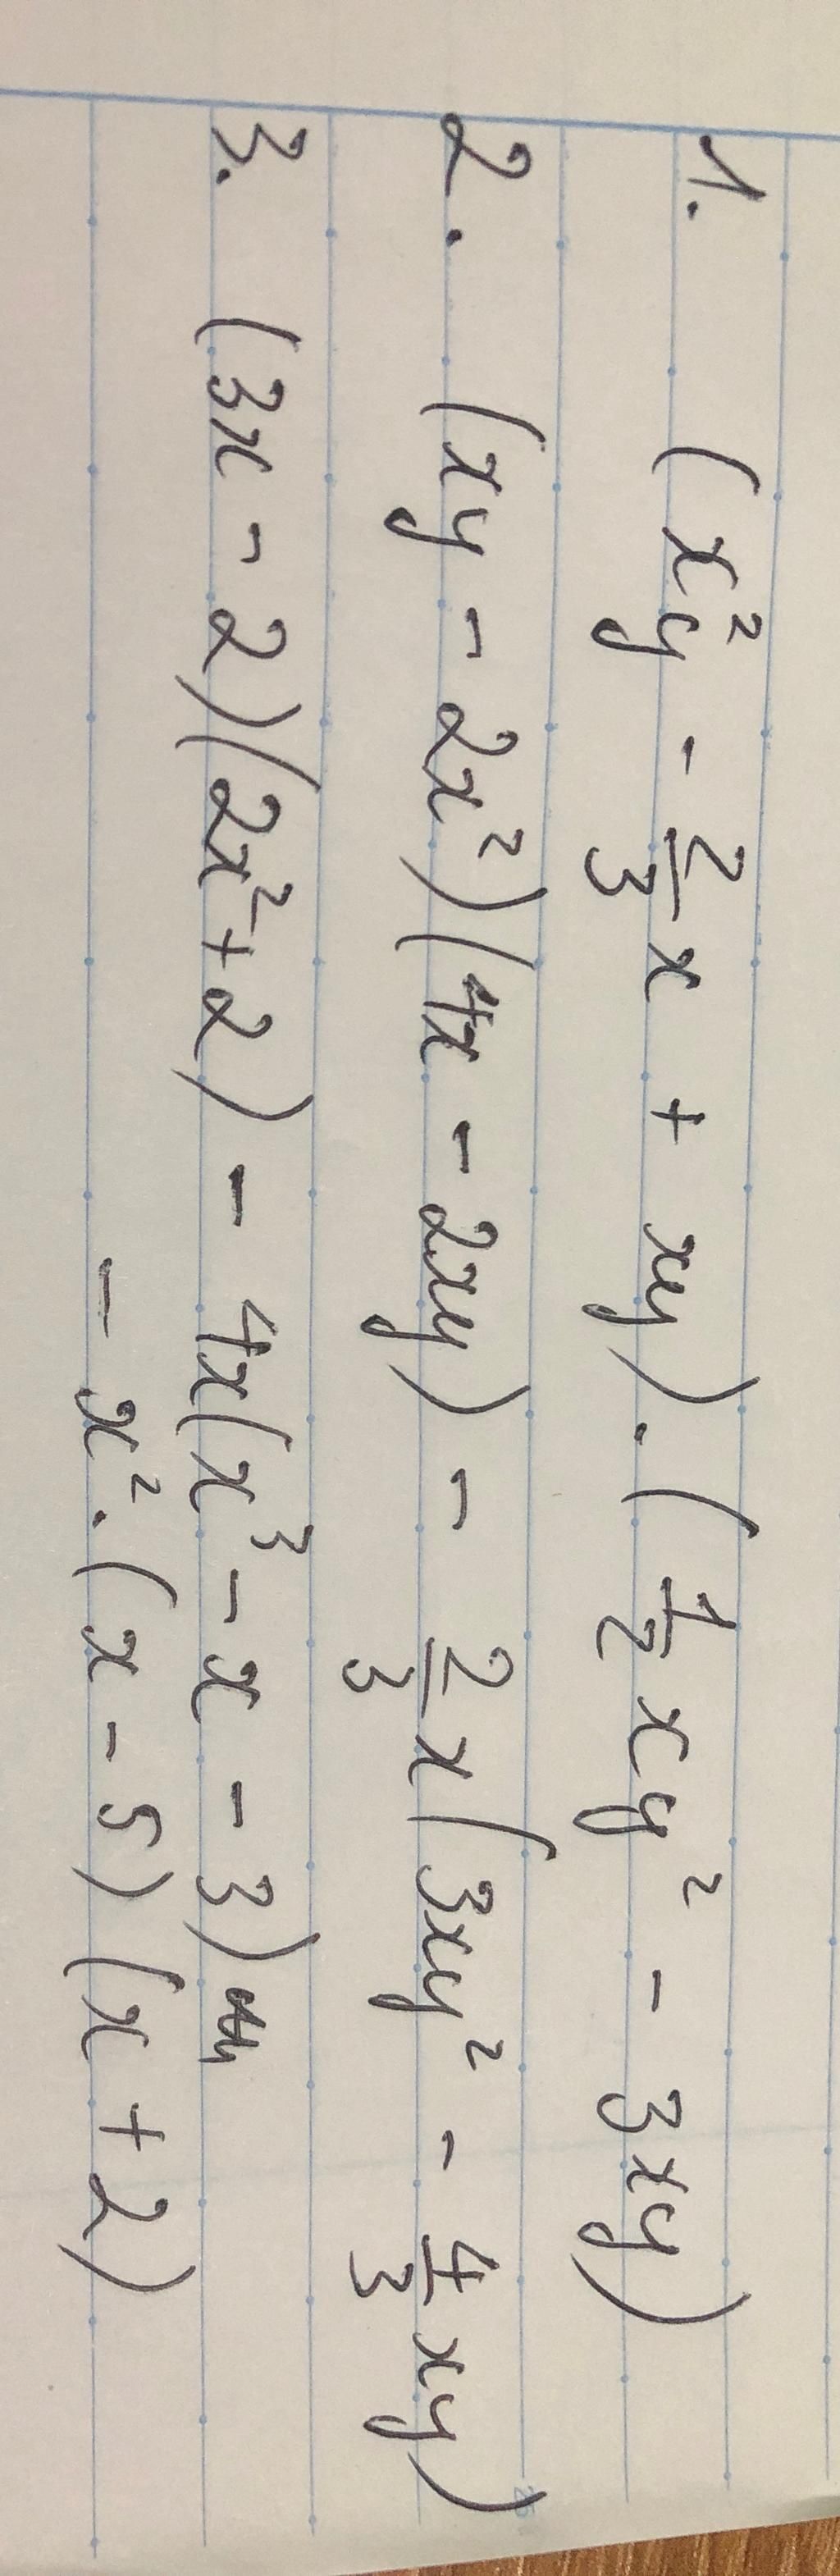 1. (x² y - 2/3 x + xy) · (1/2 xy² - 3xy)
2. (xy - 2x²)(4x - 2xy) - 2/3 x(3xy² - 4/3 xy)
3. (3x - 2)(2x² + 2) - 4x(x³ - x - 3)
- x² · (x - 5)(x + 2)